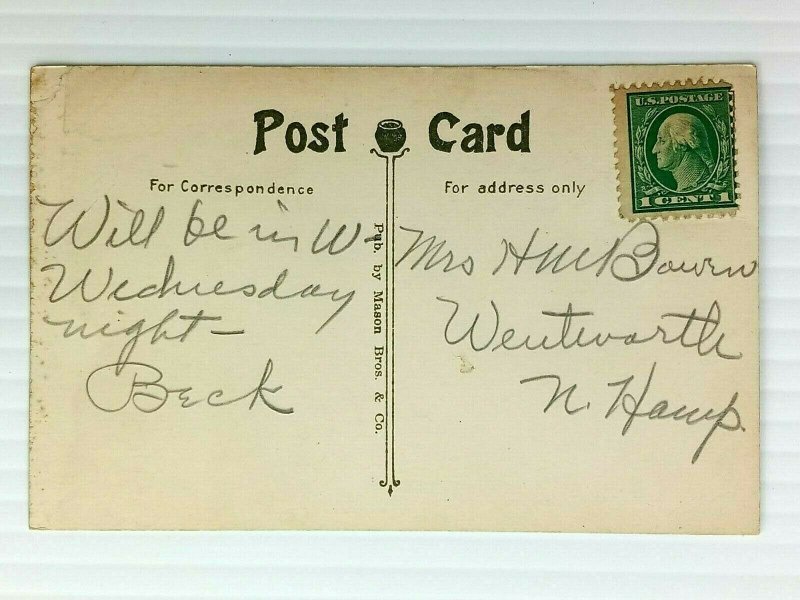 Post Card
For Correspondence
For address only
U.S. POSTAGE
1 CENT 1
Will be in W-
Wednesday
night-
Beck
Pub. by Mason Bros. & Co.
Mrs H M Bowen
Wentworth
N. Hamp.